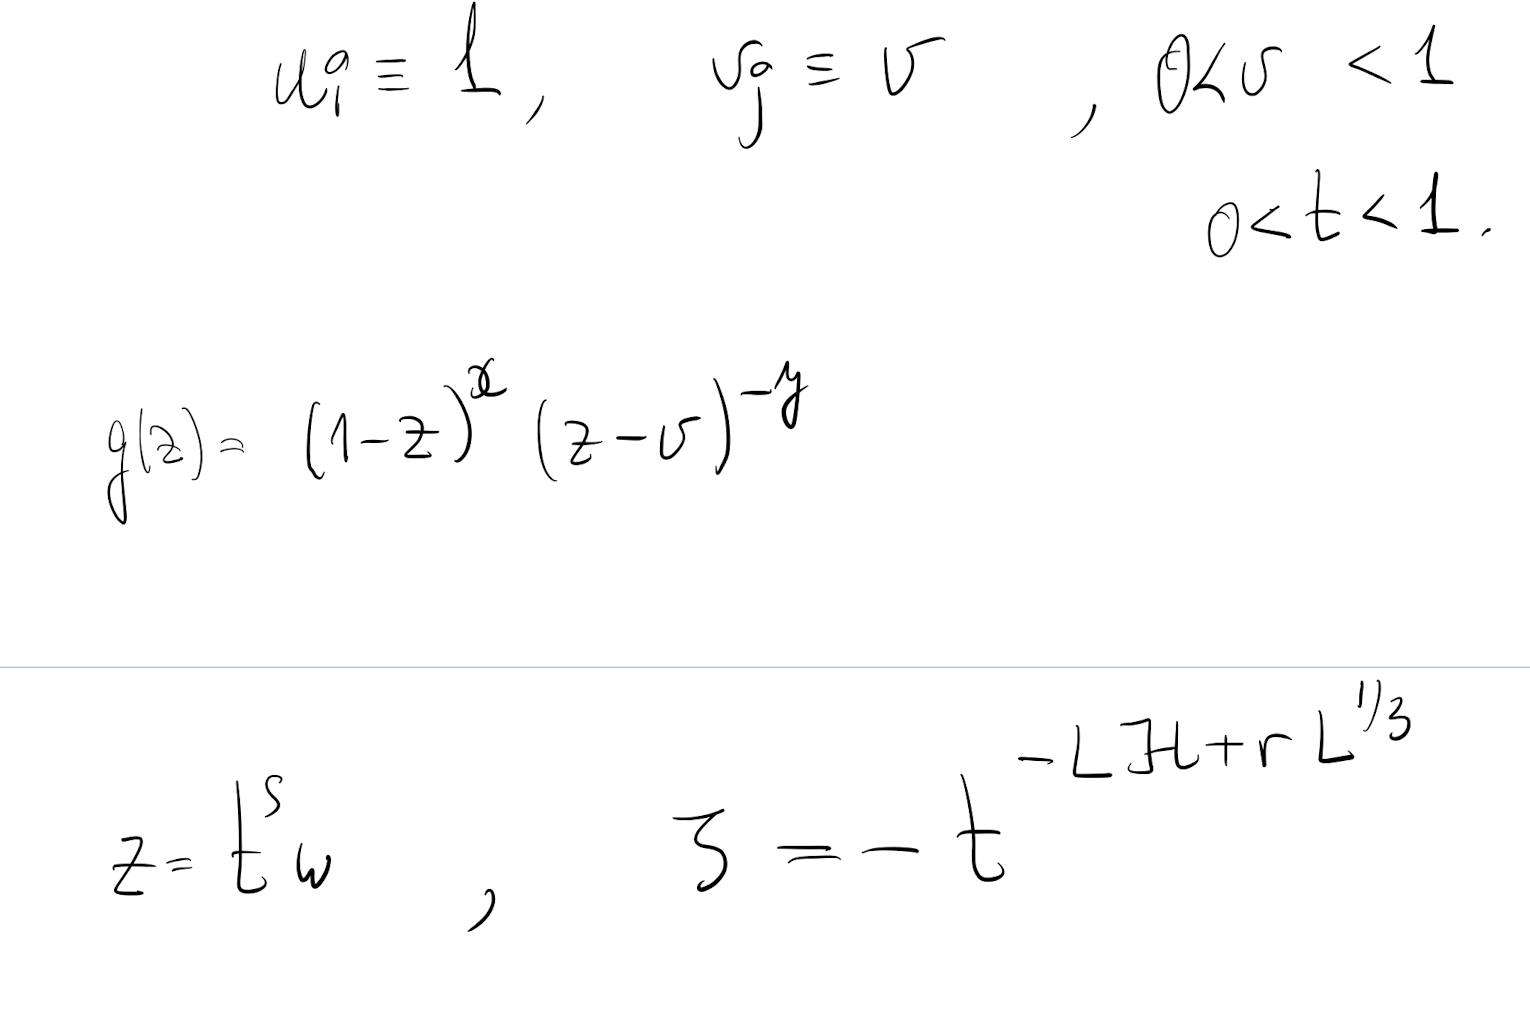 uᵢᵃ ≡ 1, vⱼᵃ ≡ v, 0<v<1
0<t<1.
g(z) = (1-z)^x (z-v)^{-y}
z = t^s w, ζ = -t^{-Lℋ+rL^{1/3}}